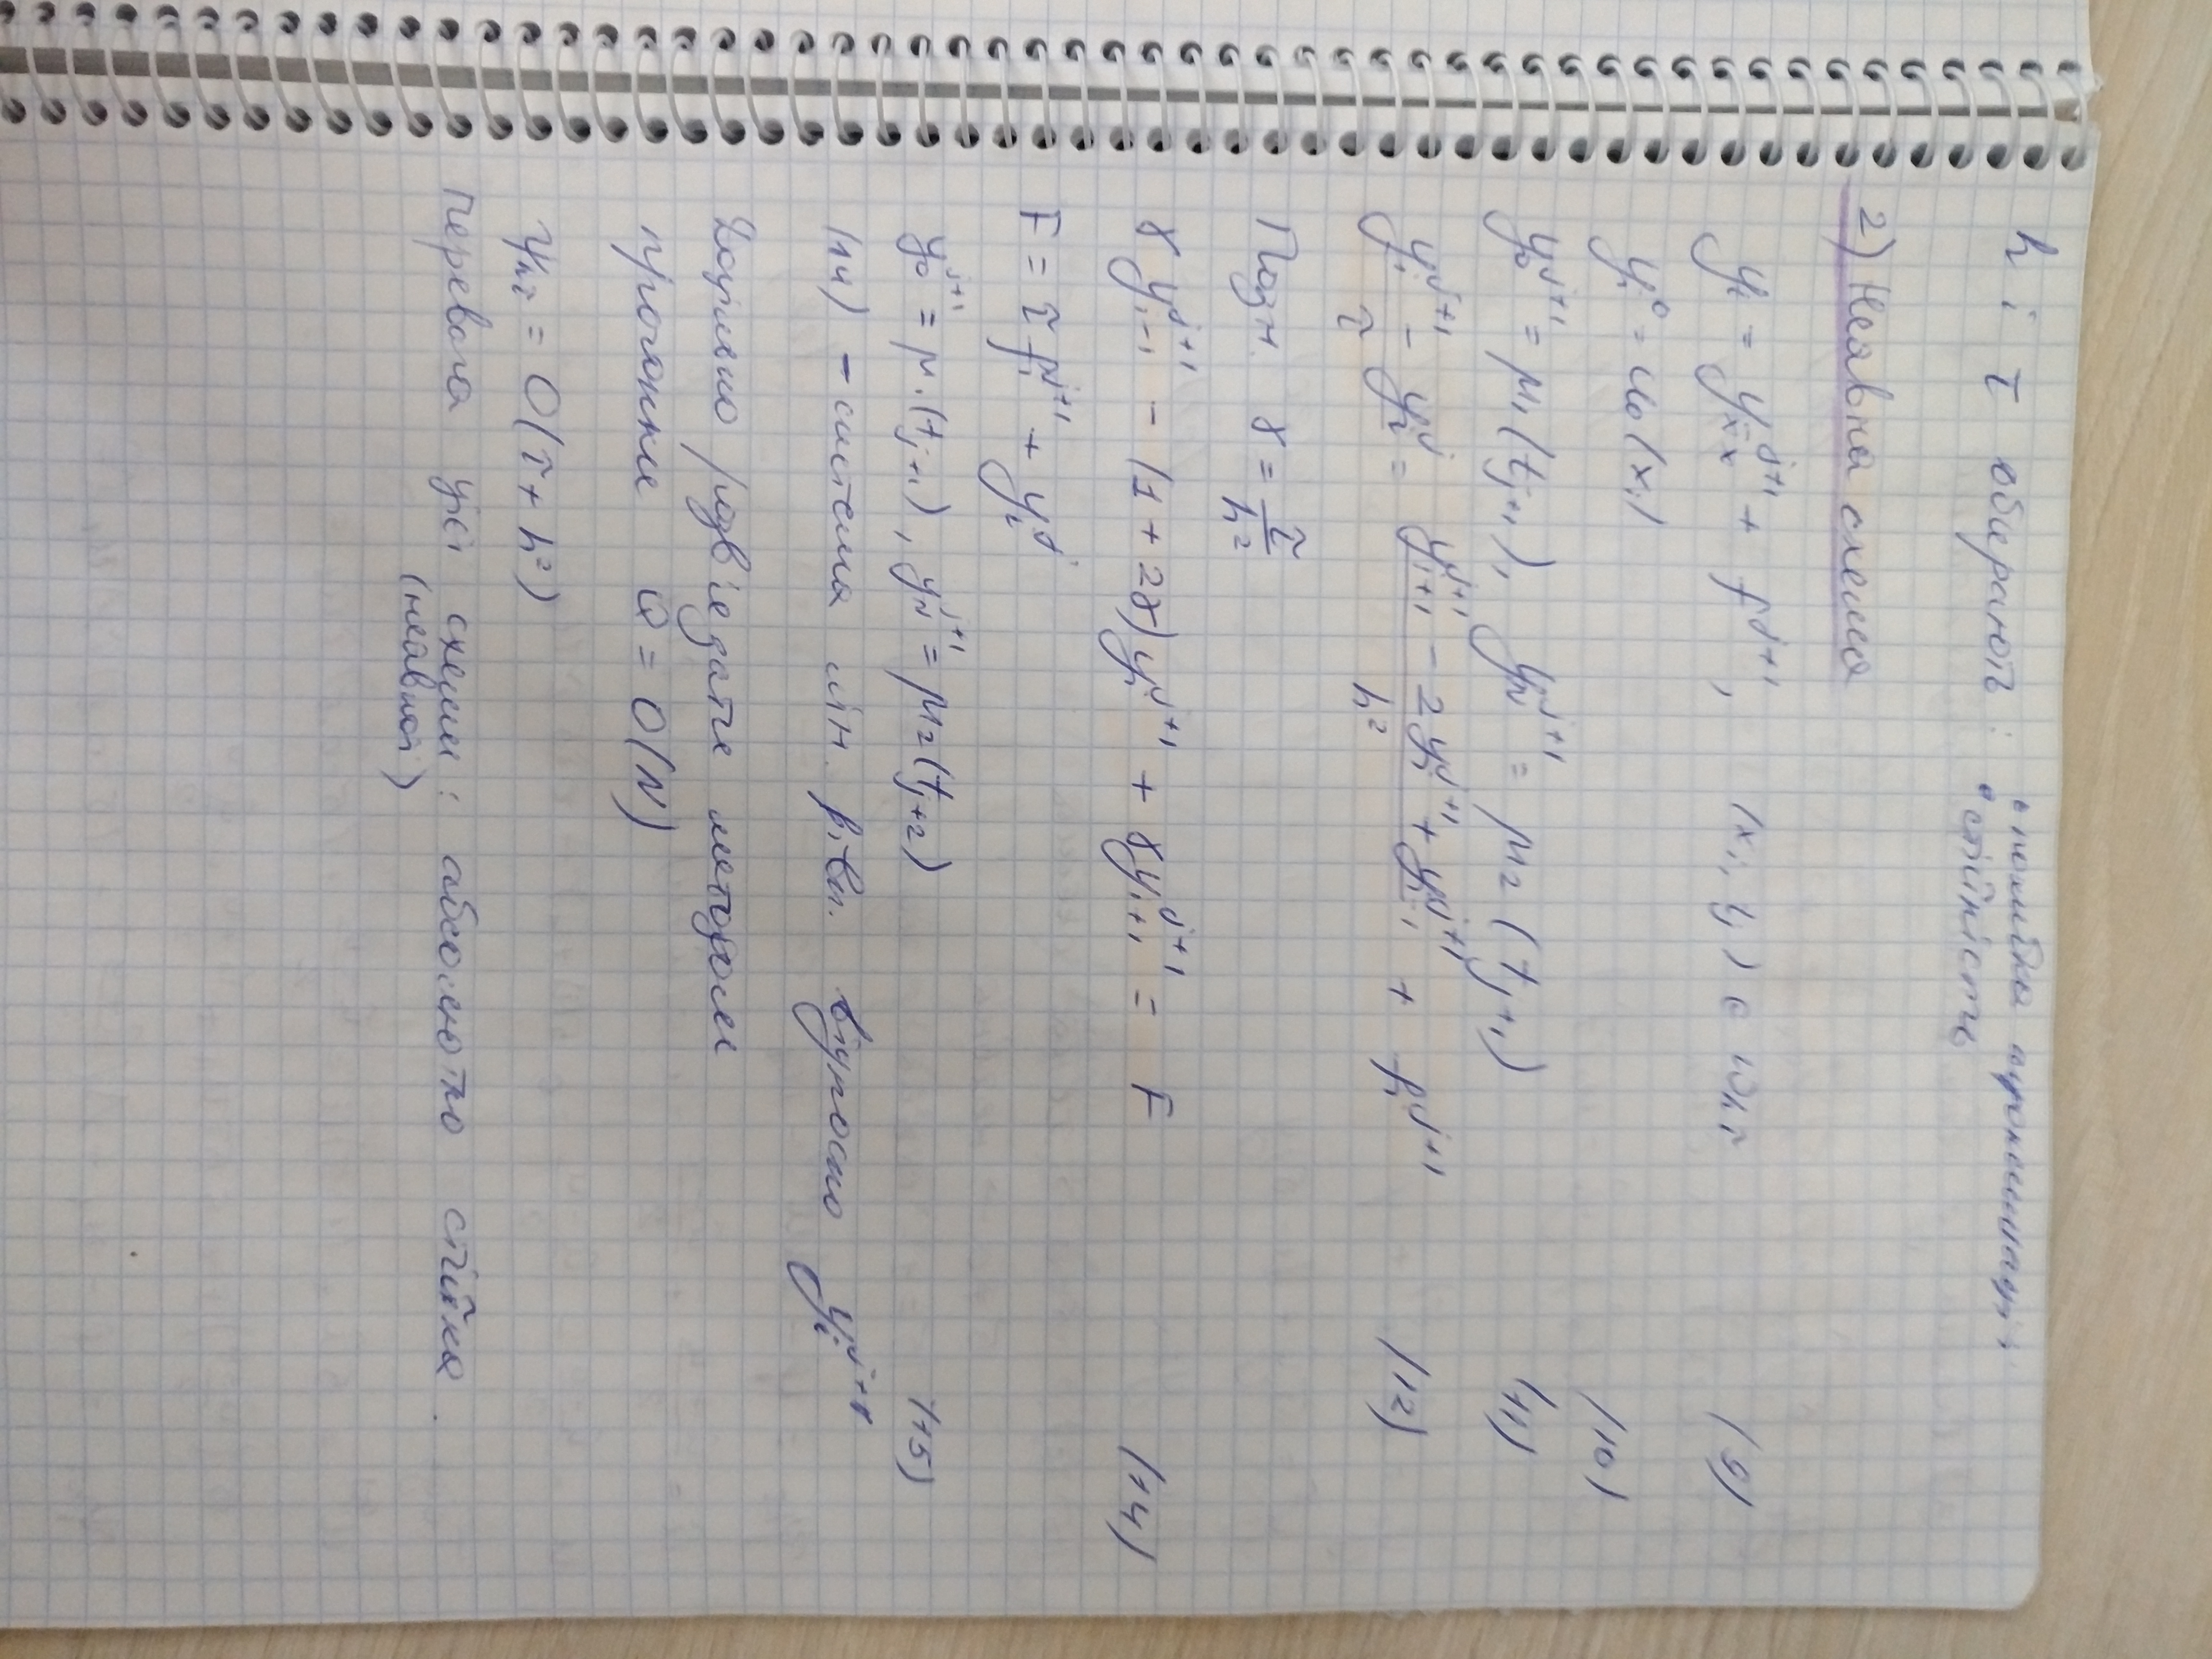 h і τ обирають : • похибка апроксимації
• стійкість
2) Неявна схема
y_t = y_{x̄x}^{j+1} + f^{j+1}, (x_i, t_j) ∈ ω_{hτ} (9)
y_i^0 = u_0(x_i) (10)
y_0^{j+1} = μ_1(t_{j+1}), y_N^{j+1} = μ_2(t_{j+1}) (11)
(y_i^{j+1} - y_i^j)/τ = (y_{i+1}^{j+1} - 2y_i^{j+1} + y_{i-1}^{j+1})/h^2 + f_i^{j+1} (12)
Позн. γ = τ/h^2
γ y_{i-1}^{j+1} - (1 + 2γ) y_i^{j+1} + γ y_{i+1}^{j+1} = F (14)
F = τ f_i^{j+1} + y_i^j
y_0^{j+1} = μ_1(t_{j+1}), y_N^{j+1} = μ_2(t_{j+2}) (15)
(14) - система лін. рівн. відносно y_i^{j+1}
Доцільно розв'язати методом
прогонки Q = O(N)
ψ_{hτ} = O(τ + h^2)
Перевага цієї схеми : абсолютно стійка.
(неявної)